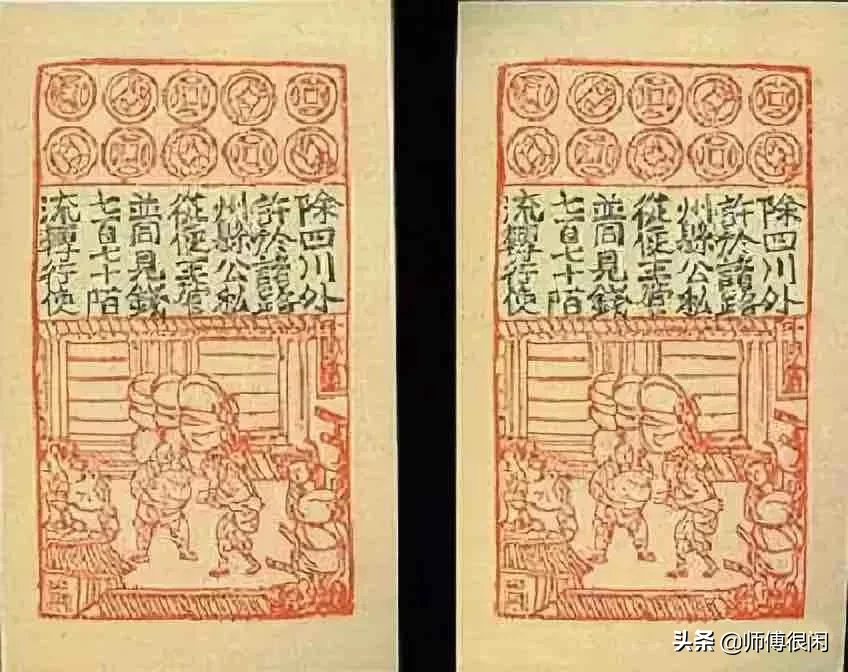 除四川外
許於諸路
州縣公私
從便主管
並同見錢
七百七十陌
流轉行使
除四川外
許於諸路
州縣公私
從便主管
並同見錢
七百七十陌
流轉行使
头条 @师傅很闲